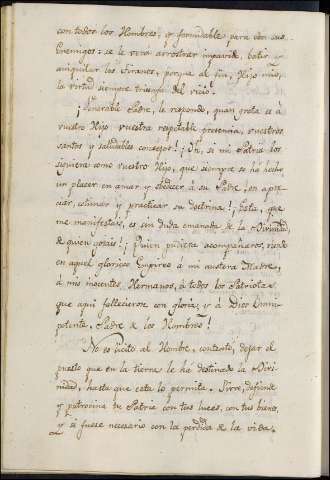 con todos los Hombres, y formidable para con sus
Enemigos: se le verá arrostrar impavido, batir y
aniquilar los tiranos, porque al fin, Hijo mio,
la virtud siempre triunfa del vicio.
¡Venerable Padre, le respondo, quan grata es á
vuestro Hijo vuestra respetable presencia, vuestros
santos y saludables consejos! ¡Oh, si mi Patria los
siguiera como vuestro Hijo, que siempre se ha hecho
un placer en amar y obedecer á su Padre, en apre-
ciar, estimar y practicar su doctrina! ¡Esta, que
me manifestais, es sin duda emanada de la Divinidad,
de quien gozais! ¡Quien pudiera acompañaros, viendo
en aquel glorioso Empireo á mi austera Madre,
á mis inocentes Hermanos, á todos los Patriotas
que aqui fallecieron con gloria, y á Dios Omni-
potente, Padre de los Hombres!
No es licito al Hombre, contestó, dejar el
puesto que en la tierra le ha destinado la Divi-
nidad, hasta que esta lo permita. Sirve, defiende
y patrocina tu Patria con tus luces, con tus bienes,
y si fuese necesario con la perdida de la vida.